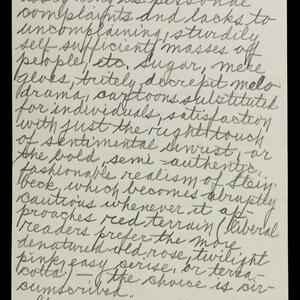 personal
complaints and lacks to
uncomplaining, sturdily
self sufficient masses of
people, etc, sugar, mere
tritely decrepit melo
drama, cartoons substituted
for individuals, satisfaction
with just the right touch
of sentimental unrest, or
the bold, semi-authentic,
fashionable realism of Stein-
beck, which becomes abruptly
cautious whenever it ap-
proaches red terrain (liberal
readers prefer the more
denatured old rose, twilight
pink, easy cerise, or terra-
cotta) — the choice is cir-
cumscribed.